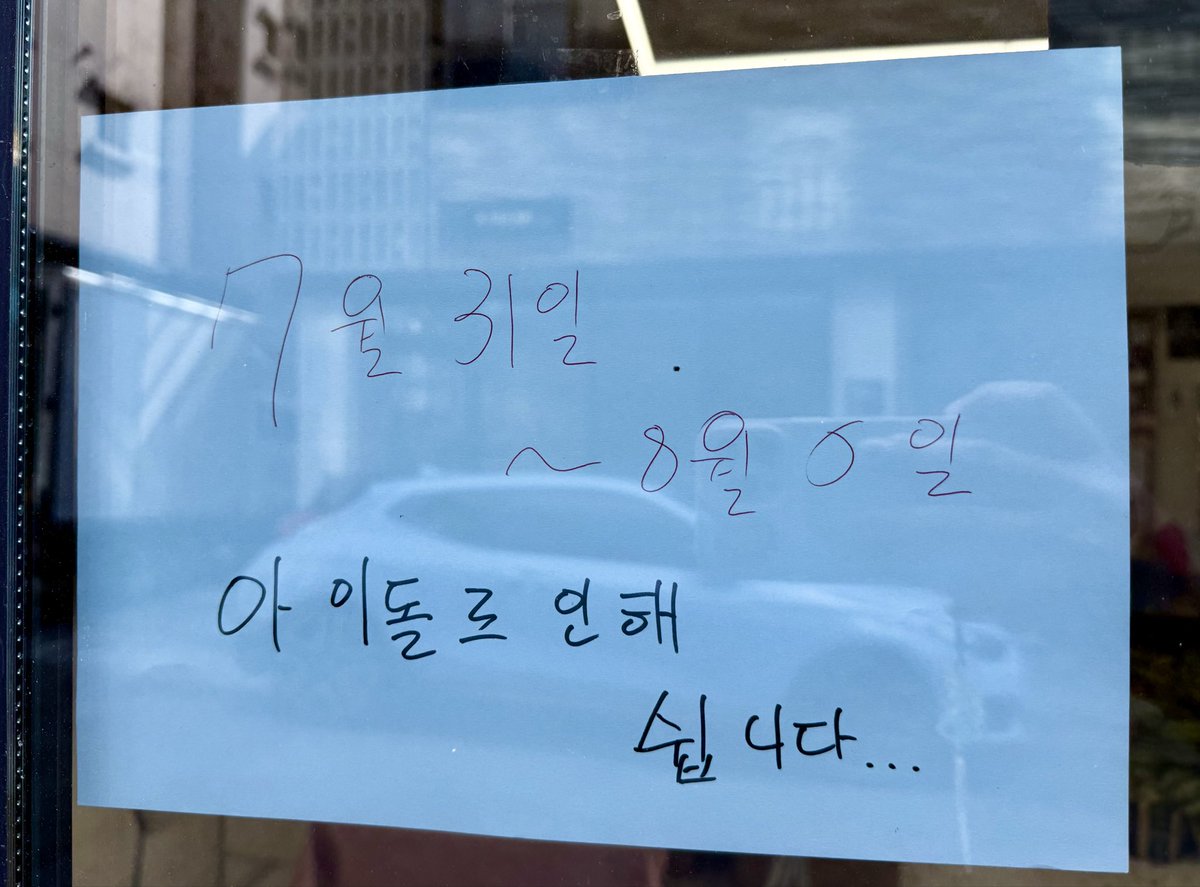 7월 31일.
~ 8월 6일
아이돌로 인해
쉽니다...